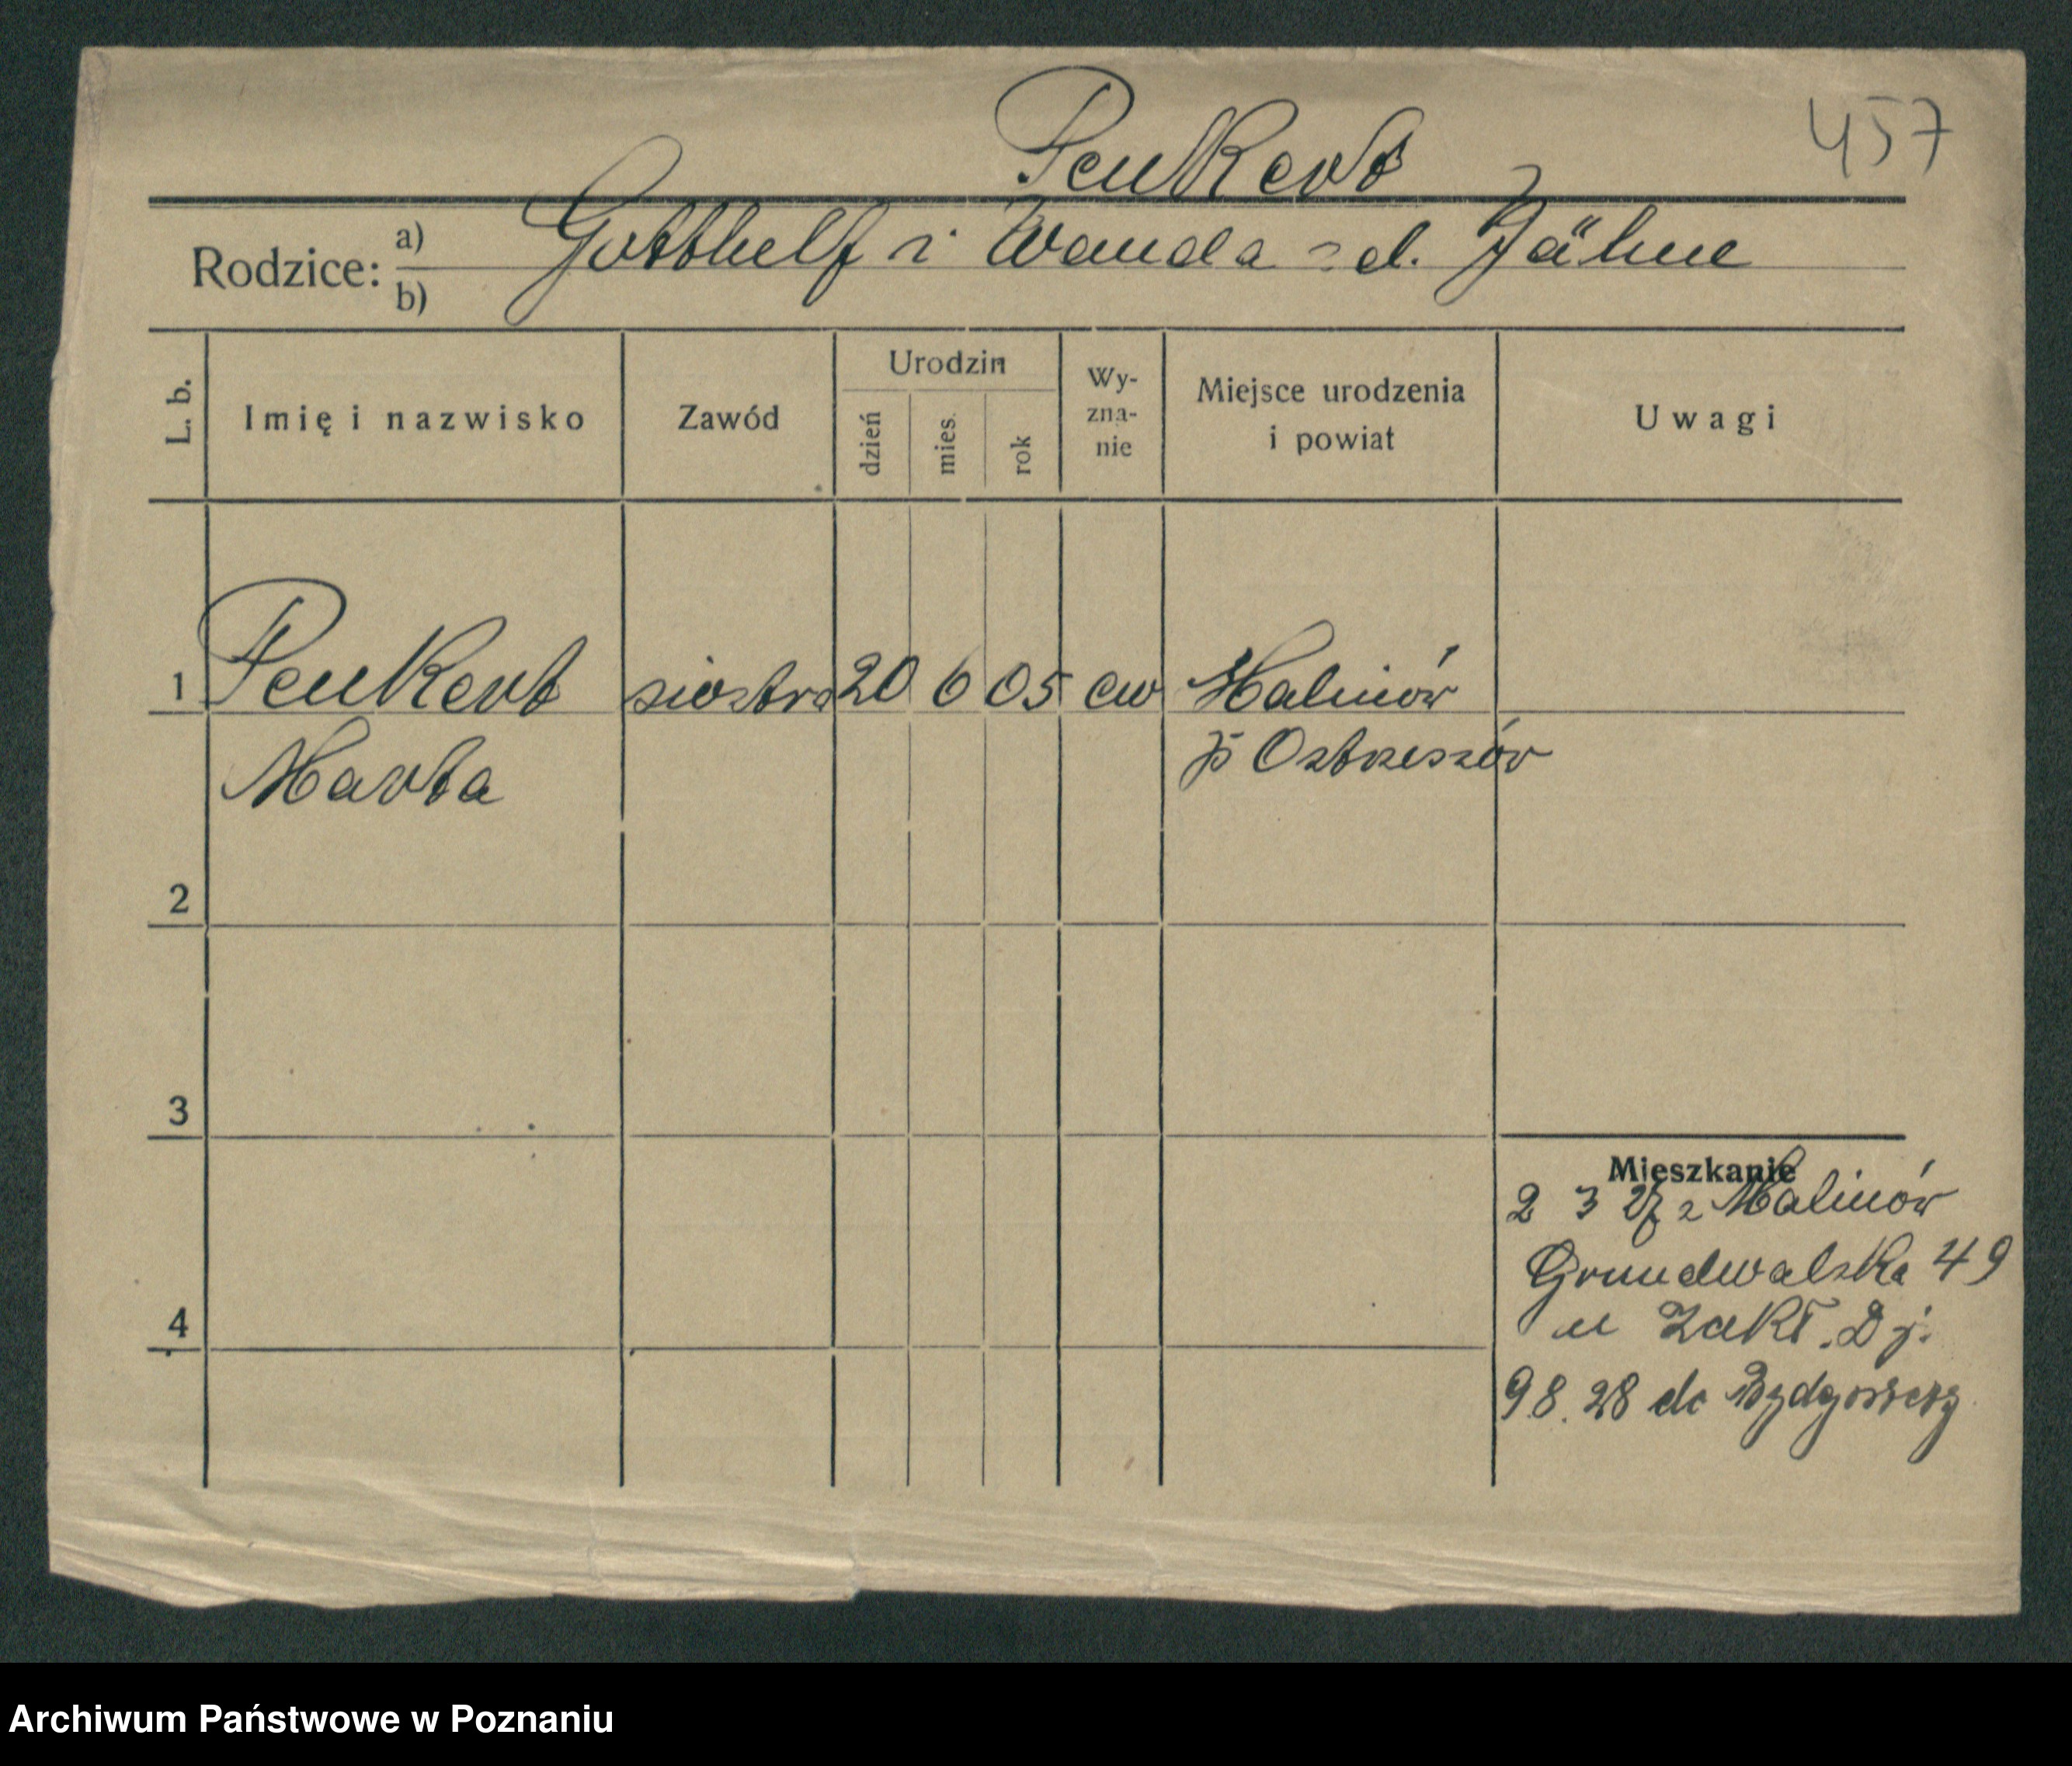 457
Peukert
Rodzice: a) b)
Gotthelf i Wanda z d. Jähne
L. b.
Imię i nazwisko
Zawód
Urodzin
dzień
mies.
rok
Wy-
zna-
nie
Miejsce urodzenia
i powiat
Uwagi
1 Peukert siostra 20 6 05 ew Malinów
Marta p Ostrzeszów
2
3
4
Mieszkanie
2 3 27 z Malinów
Grunwalska 49
u Zakł. Dj.
9.8.28 do Bydgoszczy
Archiwum Państwowe w Poznaniu